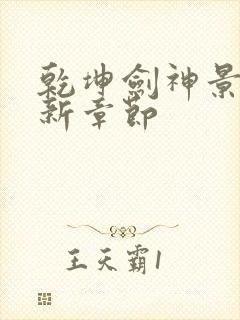 乾坤劍神景
新章節
王天霸1